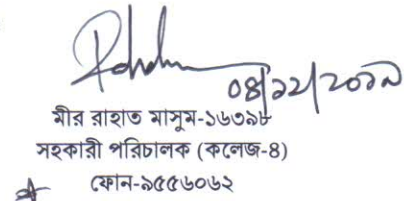 ০৪/১২/২০১৯
মীর রাহাত মাসুম-১৬৩৯৮
সহকারী পরিচালক (কলেজ-৪)
ফোন-৯৫৫৬০৬২